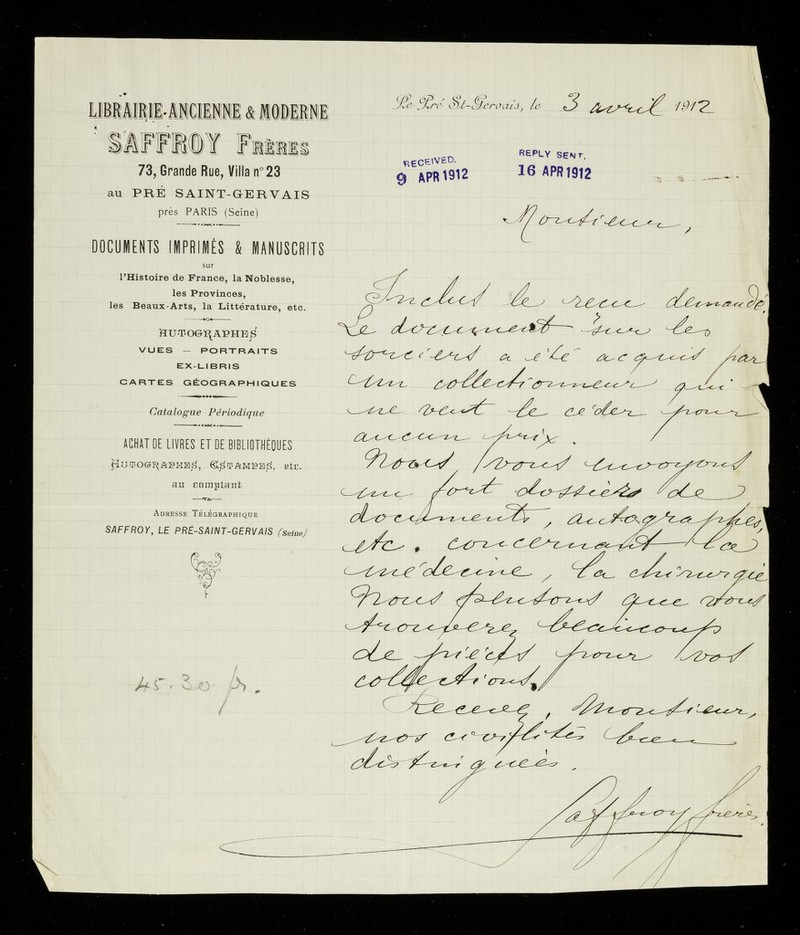 LIBRAIRIE-ANCIENNE & MODERNE
SAFFROY FRÈRES
73, Grande Rue, Villa n° 23
au PRÉ SAINT-GERVAIS
près PARIS (Seine)
DOCUMENTS IMPRIMÉS & MANUSCRITS
sur
l'Histoire de France, la Noblesse,
les Provinces,
les Beaux-Arts, la Littérature, etc.
AUTOGRAPHES
VUES — PORTRAITS
EX-LIBRIS
CARTES GÉOGRAPHIQUES
Catalogue Périodique
ACHAT DE LIVRES ET DE BIBLIOTHÈQUES
AUTOGRAPHES, ESTAMPES, etc.
au comptant
ADRESSE TÉLÉGRAPHIQUE
SAFFROY, LE PRÉ-SAINT-GERVAIS (Seine)
45.30 fr.
Le Pré St-Gervais, le 3 avril 1912
RECEIVED.
9 APR 1912
REPLY SENT.
16 APR 1912
Monsieur,
Inclus le recu demandé.
Le document "sur les
sorciers a été acquis par
un collectionneur qui
ne veut le céder pour
aucun prix.
Nous vous envoyons
un fort dossier de
documents, autographes,
etc. concernant la
médecine, la chirurgie
Nous pensons que vous
trouverez beaucoup
de pièces pour vos
collections.
Recevez, Monsieur,
nos civilités bien
distinguées.
Saffroy frères.